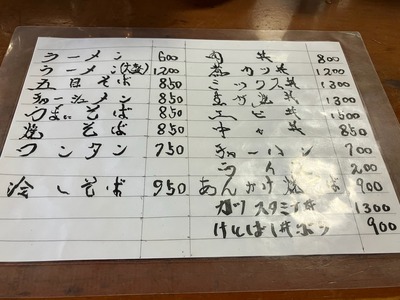 ラーメン 600
ラーメン(大盛) 1200
五目そば 850
チャーシューメン 850
うまにそば 850
焼そば 850
ワンタン 750
冷しそば 950
丼 800
カツ丼 1200
ミックス丼 1300
1300
エビ丼 1500
中丼 850
チャーハン 700
ライス 200
あんかけ焼そば 900
カツスタミナ丼 1300
900